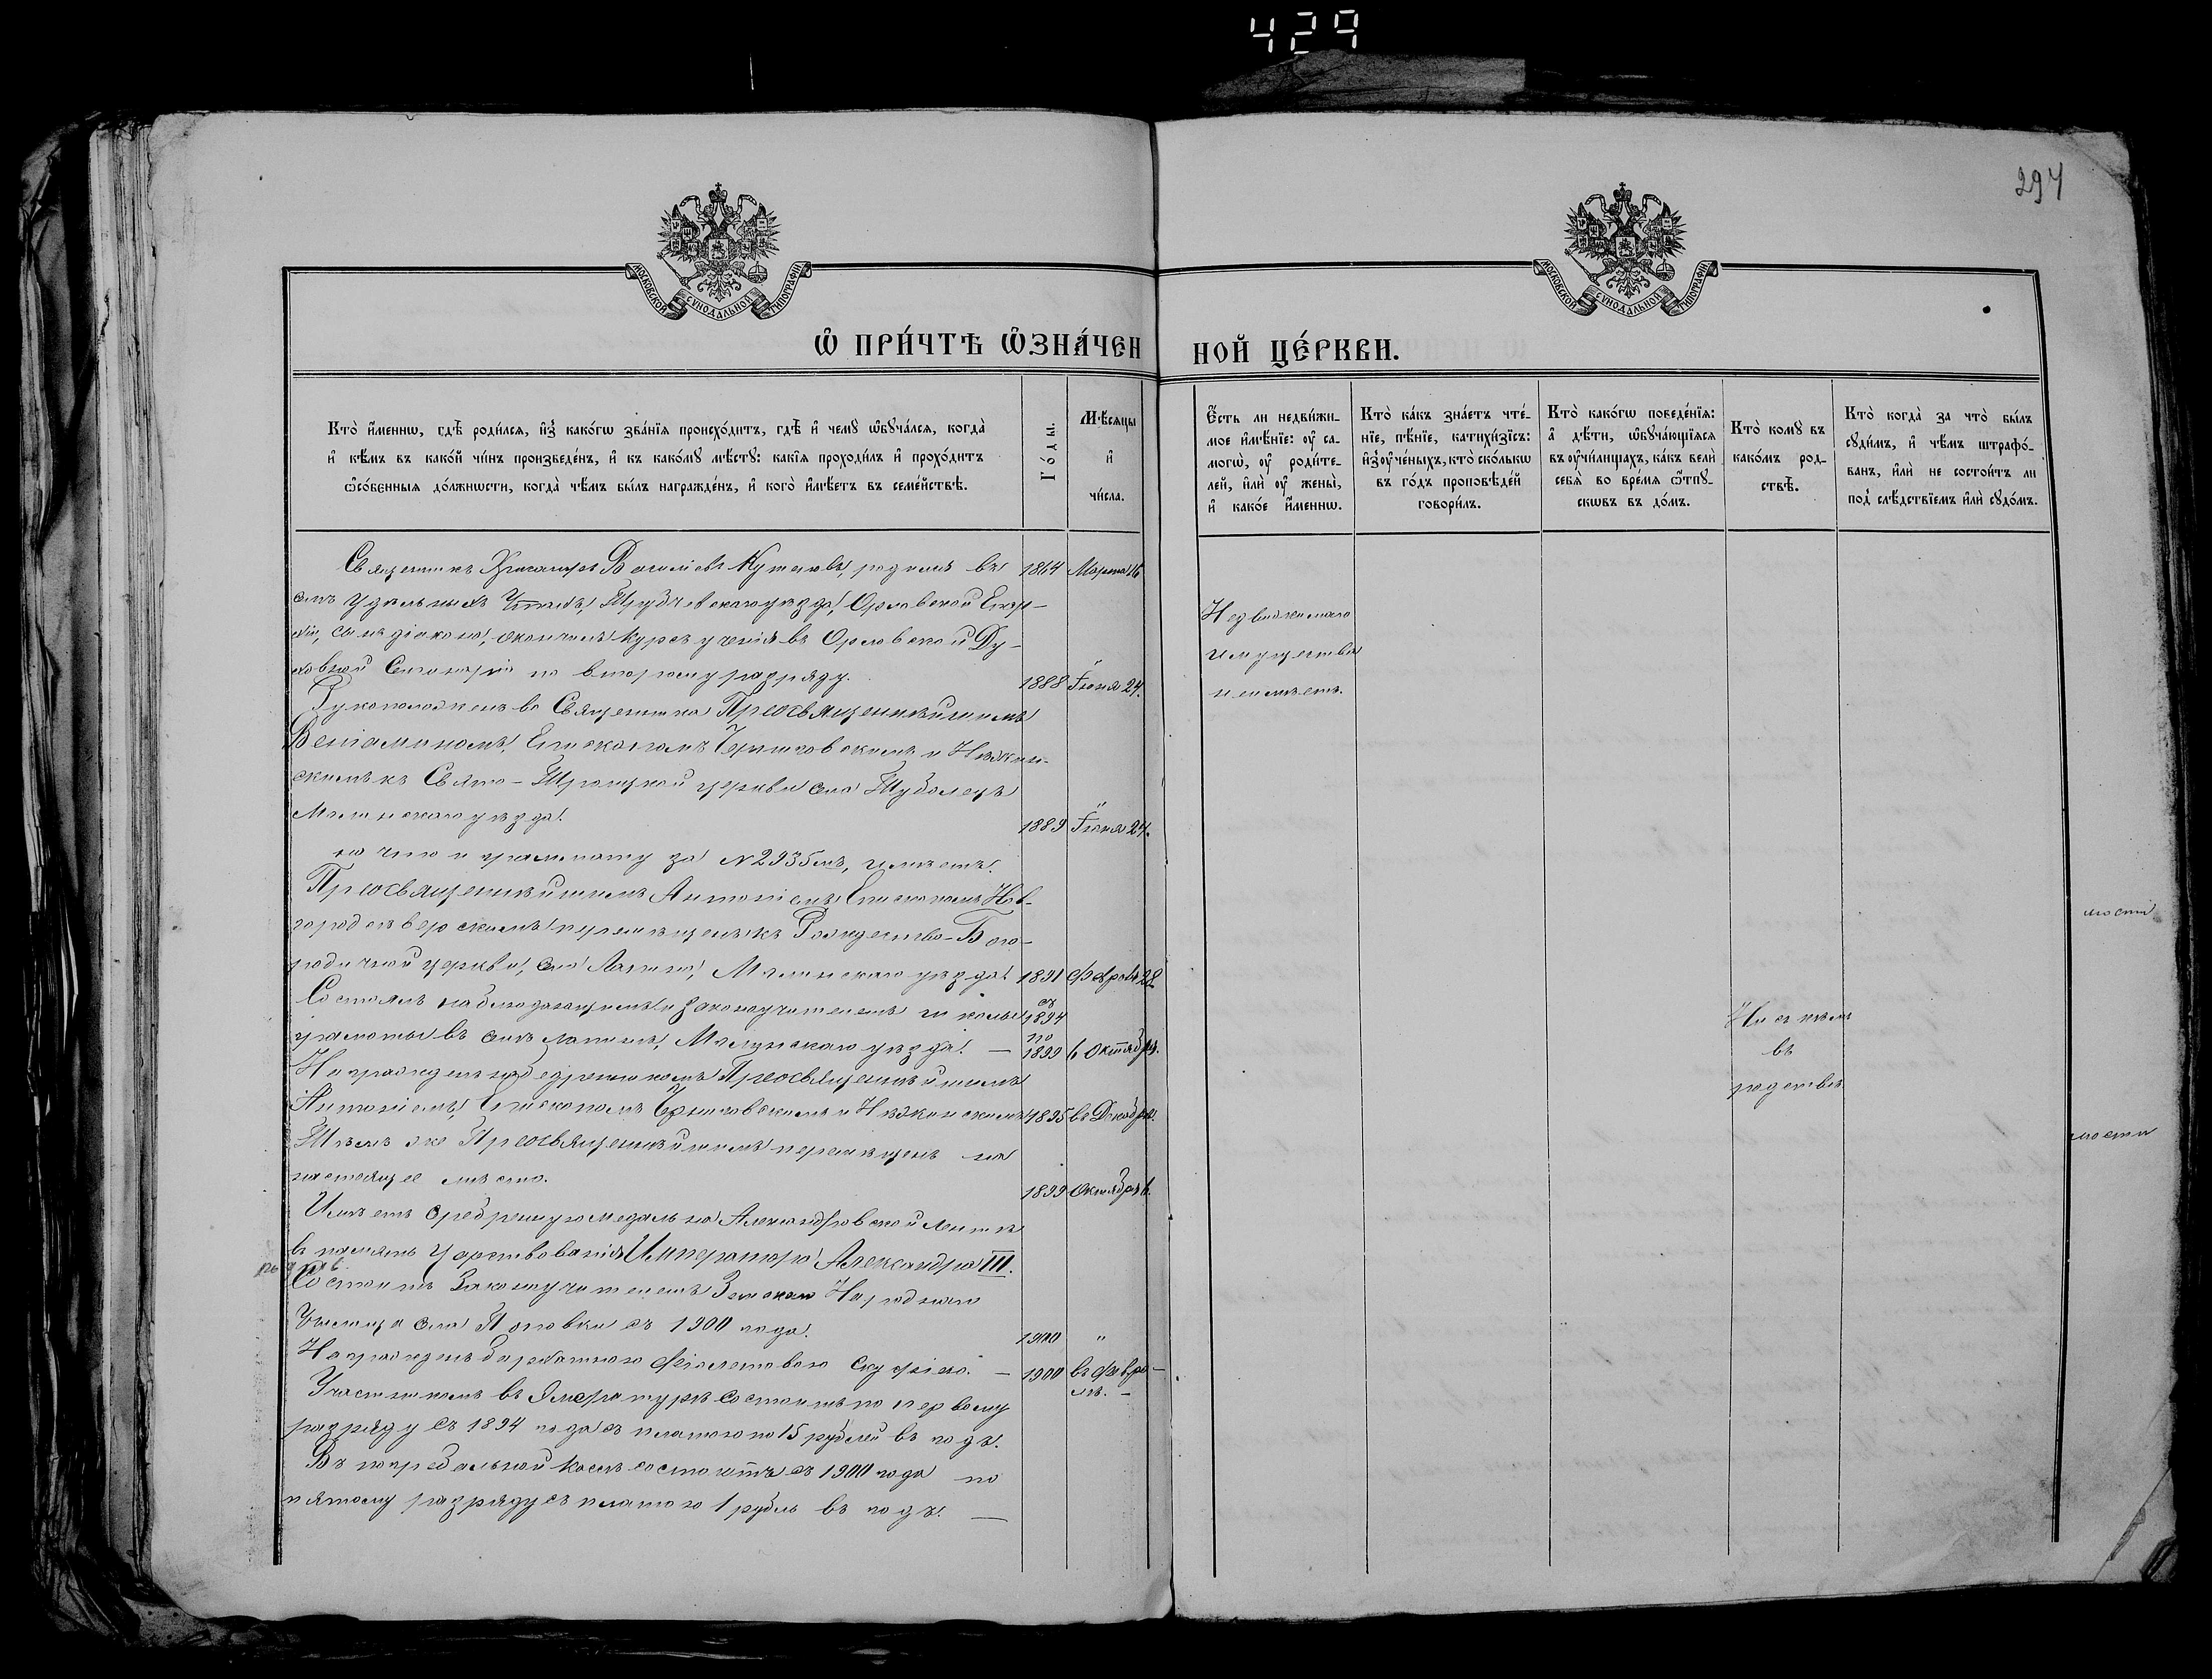 429
297
МОСКОВСКОЙ СѴНОДАЛЬНОЙ ТИПОГРАФІИ
МОСКОВСКОЙ СѴНОДАЛЬНОЙ ТИПОГРАФІИ
Ѡ ПРИ́ЧТѢ ѠЗНА́ЧЕН НОЙ ЦЕ́РКВИ.
Кто̀ и҆́меннѡ, гдѣ̀ роди́лся, и҆з̾ како́гѡ зва́нїѧ происхо́дитъ, гдѣ̀ и҆ чемꙋ̀ ѡ҆бꙋча́лся, когда̀
и҆ кѣ́мъ въ како́й чи́нъ произведе́нъ, и҆ къ како́мꙋ мѣ́стꙋ: какі̑я проходи́лъ и҆ прохо́дитъ
ѻ҆со́бенныя до́лжнѡсти, когда̀ чѣ́мъ бы́лъ награжде́нъ, и҆ кого̀ и҆мѣ́етъ въ семе́йствѣ.
Го́ды.
Мѣ́сѧцы
и҆
чи́сла.
Є҆́сть ли недви́жи-
мое и҆мѣ́нїе: ᲂу҆ са-
могѡ̀, ᲂу҆ роди́те-
лей, и҆лѝ ᲂу҆ жены̀,
и҆ како́е и҆́меннѡ.
Кто̀ ка́къ зна́етъ чте́-
нїе, пѣ́нїе, катихи́зїсъ:
и҆з̾ ᲂу҆че́ныхъ, кто̀ ско́лькѡ
въ го́дъ проповѣ́дей
говори́лъ.
Кто̀ како́гѡ поведе́нїя:
а҆ дѣ́ти, ѡ҆бꙋча́ющїяся
въ ᲂу҆чи́лищахъ, ка́къ велѝ
себѧ̀ во вре́мя ѿпꙋ-
скѡвъ въ до́мъ.
Кто̀ комꙋ̀ въ
како́мъ род-
ствѣ̀.
Кто̀ когда̀ за что̀ бы́лъ
сꙋди́мъ, и҆ чѣ́мъ штрафо́-
ванъ, и҆лѝ не состои́тъ ли
под̾ слѣ́дствїемъ и҆лѝ сꙋдо́мъ.
Священникъ Васильевъ родился въ 1864 Марта 16
селѣ Удѣльныхъ Утахъ, Трубчевскаго уѣзда, Орловской Епар-
хіи, сынъ діакона, окончилъ курсъ ученія въ Орловской Ду-
ховной Семинаріи по второму разряду. 1888 Іюня 24.
Рукоположенъ во Священника Преосвященнѣйшимъ
Веніаминомъ, Епископомъ Черниговскимъ и Нѣжин-
скимъ къ Свято-Троицкой церкви села Туболецъ
Мглинскаго уѣзда. 1889 Іюня 24.
на что и граммату за №2935мъ, имѣетъ.
Преосвященнѣйшимъ Антоніемъ Епископомъ Нов-
городсѣверскимъ перемѣщенъ къ Рождество-Бого-
родичной церкви, села Лапина, Мглинскаго уѣзда. 1891 Февраля 28
Состоялъ наблюдающимъ и законоучителемъ школы съ 1894
грамоты въ селѣ Лапинѣ, Мглинскаго уѣзда. — по 1899 6 Октября.
Награжденъ набедренникомъ Преосвященнѣйшимъ
Антоніемъ, Епископомъ Черниговскимъ и Нѣжинскимъ 1895 въ Декабрѣ.
Тѣмъ же Преосвященнѣйшимъ перемѣщенъ на
настоящее мѣсто. 1899 Октября 6.
Имѣетъ серебренную медаль на Александровской лентѣ
въ память Царствованія Императора Александра III.
Состоитъ Законоучителемъ Земскаго Народнаго
Училища села съ 1900 года. 1900 "
Награжденъ бархатною фіолетовою скуфіею. — 1900 въ Февра-
лѣ. —
Участникомъ въ Эмеритурѣ состоитъ по первому
разряду съ 1894 года съ платою по 15 рублей въ годъ.
Въ погребальной кассѣ состоитъ съ 1900 года по
пятому разряду съ платою 1 рубль въ годъ. —
Недвижимаго
имущества
неимѣетъ.
Ни съ кѣмъ
въ
родствѣ
мости
мости